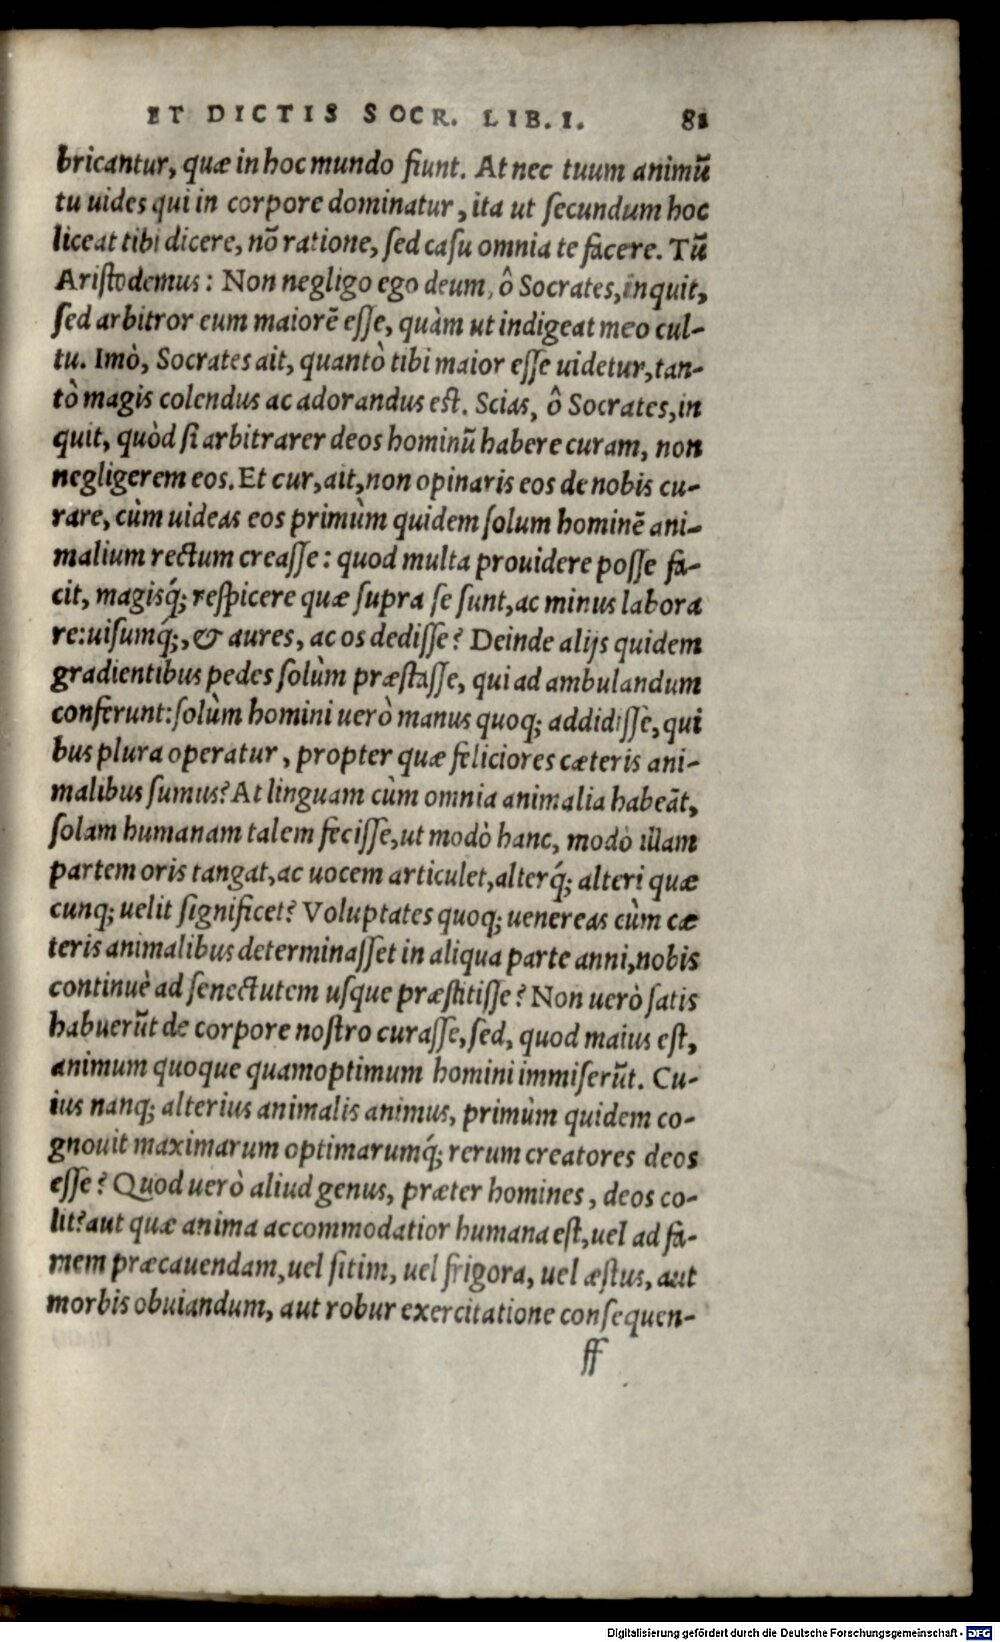 ET DICTIS SOCR. LIB. I. 81
bricantur, quæ in hoc mundo fiunt. At nec tuum animũ
tu uides qui in corpore dominatur, ita ut ſecundum hoc
liceat tibi dicere, nõ ratione, ſed caſu omnia te facere. Tũ
Ariſtodemus: Non negligo ego deum, ô Socrates, inquit,
ſed arbitror eum maiorẽ eſſe, quàm ut indigeat meo cul-
tu. Imò, Socrates ait, quantò tibi maior eſſe uidetur, tan-
tò magis colendus ac adorandus eſt. Scias, ô Socrates, in
quit, quòd ſi arbitrarer deos hominũ habere curam, non
negligerem eos. Et cur, ait, non opinaris eos de nobis cu-
rare, cùm uideas eos primùm quidem ſolum hominẽ ani-
malium rectum creaſſe: quod multa prouidere poſſe fa-
cit, magisq́; reſpicere quæ ſupra ſe ſunt, ac minus labora
re: uiſumq́;, & aures, ac os dediſſe? Deinde alijs quidem
gradientibus pedes ſolùm præſtaſſe, qui ad ambulandum
conferunt: ſolùm homini uerò manus quoq; addidiſſe, qui
bus plura operatur, propter quæ feliciores cæteris ani-
malibus ſumus? At linguam cùm omnia animalia habeãt,
ſolam humanam talem feciſſe, ut modò hanc, modò illam
partem oris tangat, ac uocem articulet, alterq́; alteri quæ
cunq; uelit ſignificet? Voluptates quoq; uenereas cùm cæ
teris animalibus determinaſſet in aliqua parte anni, nobis
continuè ad ſenectutem uſque præſtitiſſe? Non uerò ſatis
habuerũt de corpore noſtro curaſſe, ſed, quod maius eſt,
animum quoque quamoptimum homini immiſerũt. Cu-
ius nanq; alterius animalis animus, primùm quidem co-
gnouit maximarum optimarumq́; rerum creatores deos
eſſe? Quod uerò aliud genus, præter homines, deos co-
lit? aut quæ anima accommodatior humana eſt, uel ad fa-
mem præcauendam, uel ſitim, uel frigora, uel æſtus, aut
morbis obuiandum, aut robur exercitatione conſequen-
ff
Digitalisierung gefördert durch die Deutsche Forschungsgemeinschaft - DFG